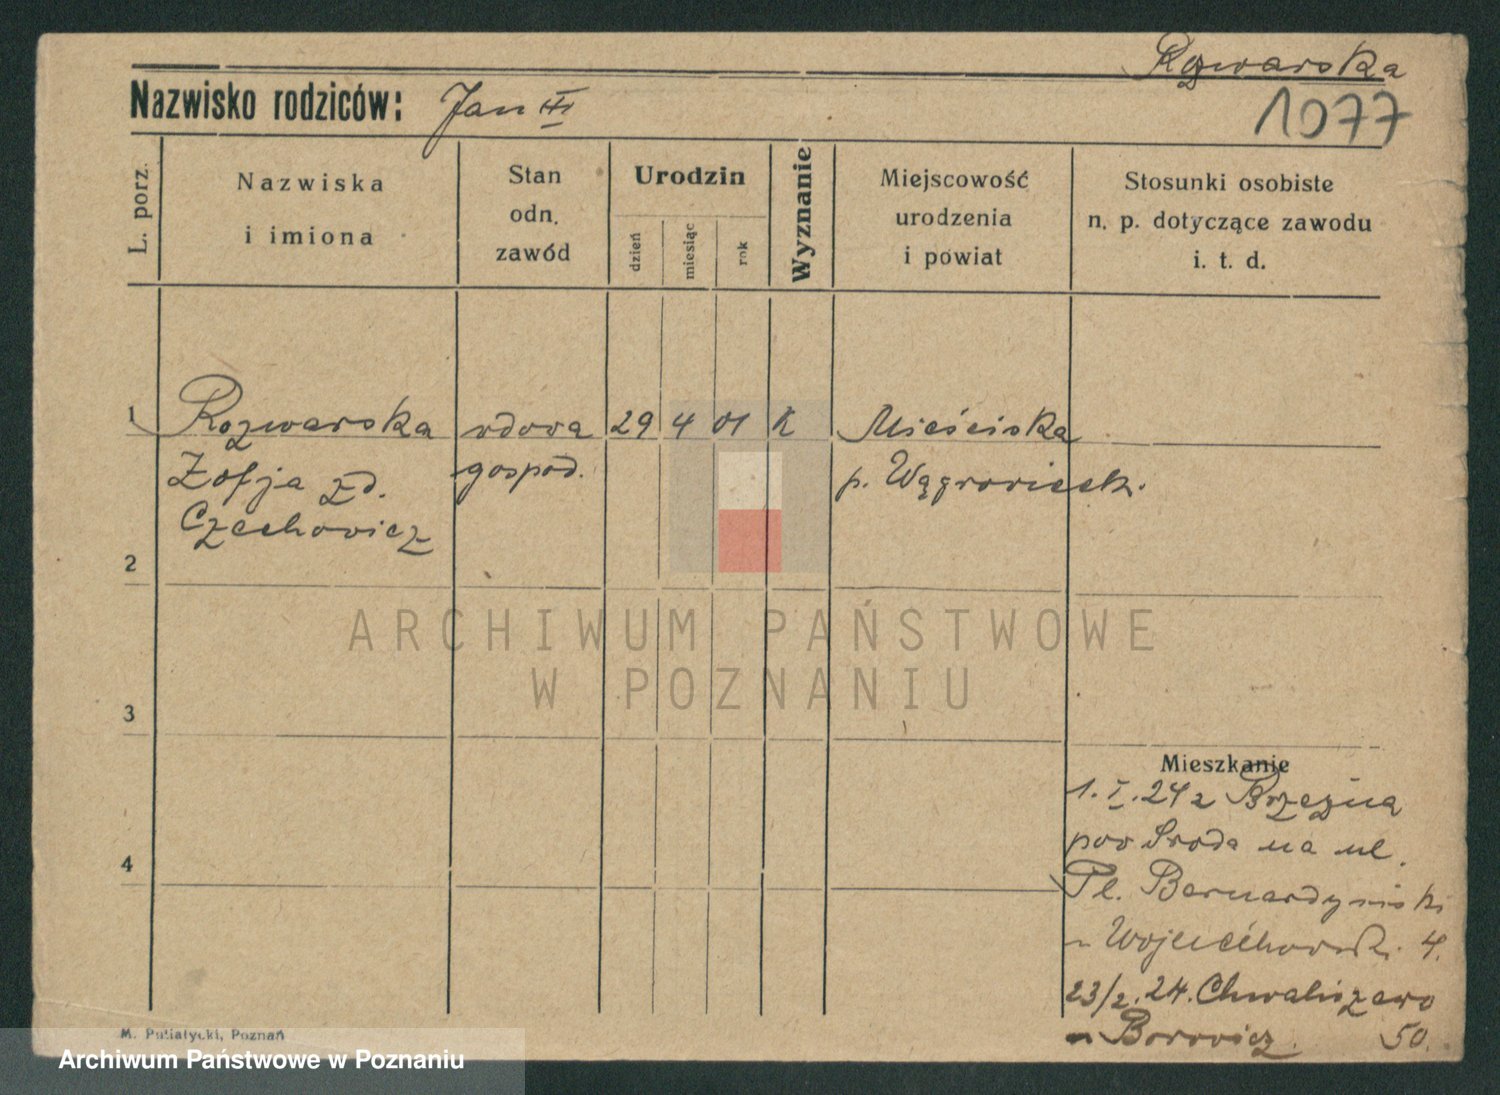 Rozwarska
1077
Nazwisko rodziców: Jan
L. porz.
Nazwiska
i imiona
Stan
odn.
zawód
Urodzin
dzień
miesiąc
rok
Wyznanie
Miejscowość
urodzenia
i powiat
Stosunki osobiste
n. p. dotyczące zawodu
i. t. d.
1 Rozwarska wdowa 29 4 01 K Mieściska
Zofja zd. gospod. p. Wągrowieck.
Czechowicz
2
ARCHIWUM PAŃSTWOWE
W POZNANIU
3
Mieszkanie
1. I. 24 z
pow Środa na ul.
4
Pl. Bernardyński
Wojciechowski 4.
23/2. 24. Chwaliszewo
Borowicz. 50.
M. Putiatycki, Poznań
Archiwum Państwowe w Poznaniu